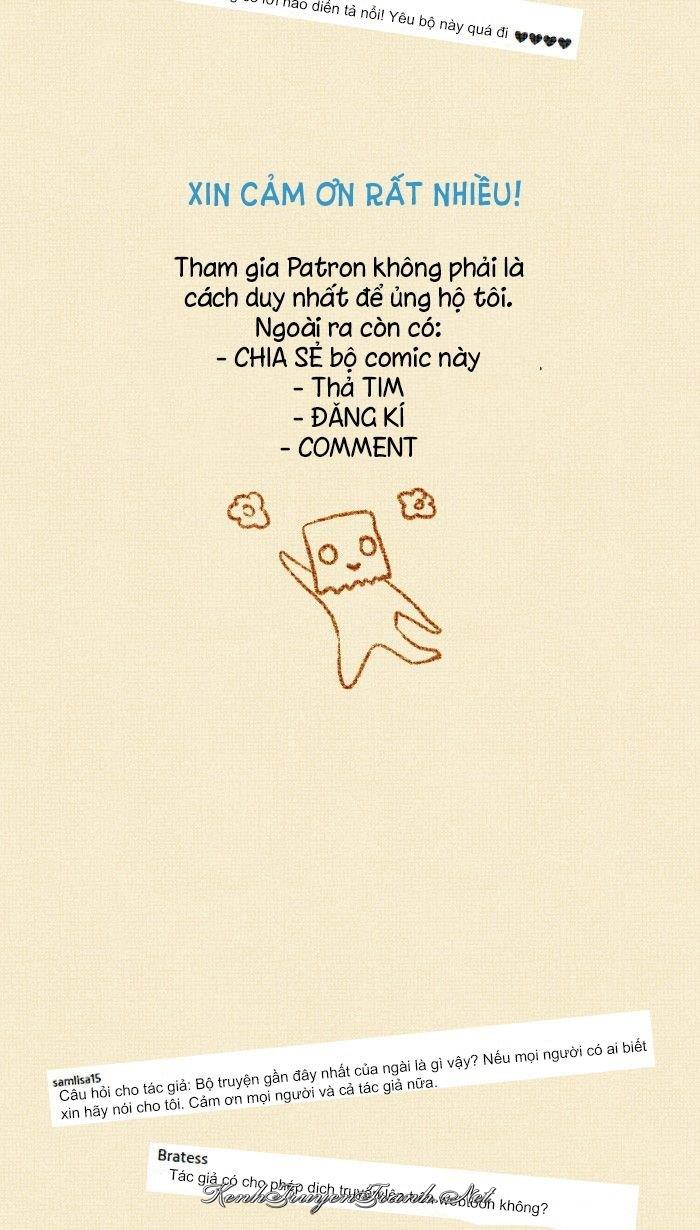 lời nào diễn tả nổi! Yêu bộ này quá đi
XIN CẢM ƠN RẤT NHIỀU!
Tham gia Patron không phải là
cách duy nhất để ủng hộ tôi.
Ngoài ra còn có:
- CHIA SẺ bộ comic này
- Thả TIM
- ĐĂNG KÍ
- COMMENT
samlisa15
Câu hỏi cho tác giả: Bộ truyện gần đây nhất của ngài là gì vậy? Nếu mọi người có ai biết
xin hãy nói cho tôi. Cảm ơn mọi người và cả tác giả nữa.
Bratess
Tác giả có cho phép dịch truyện webtoon không?
KenhTruyenTranh.Net